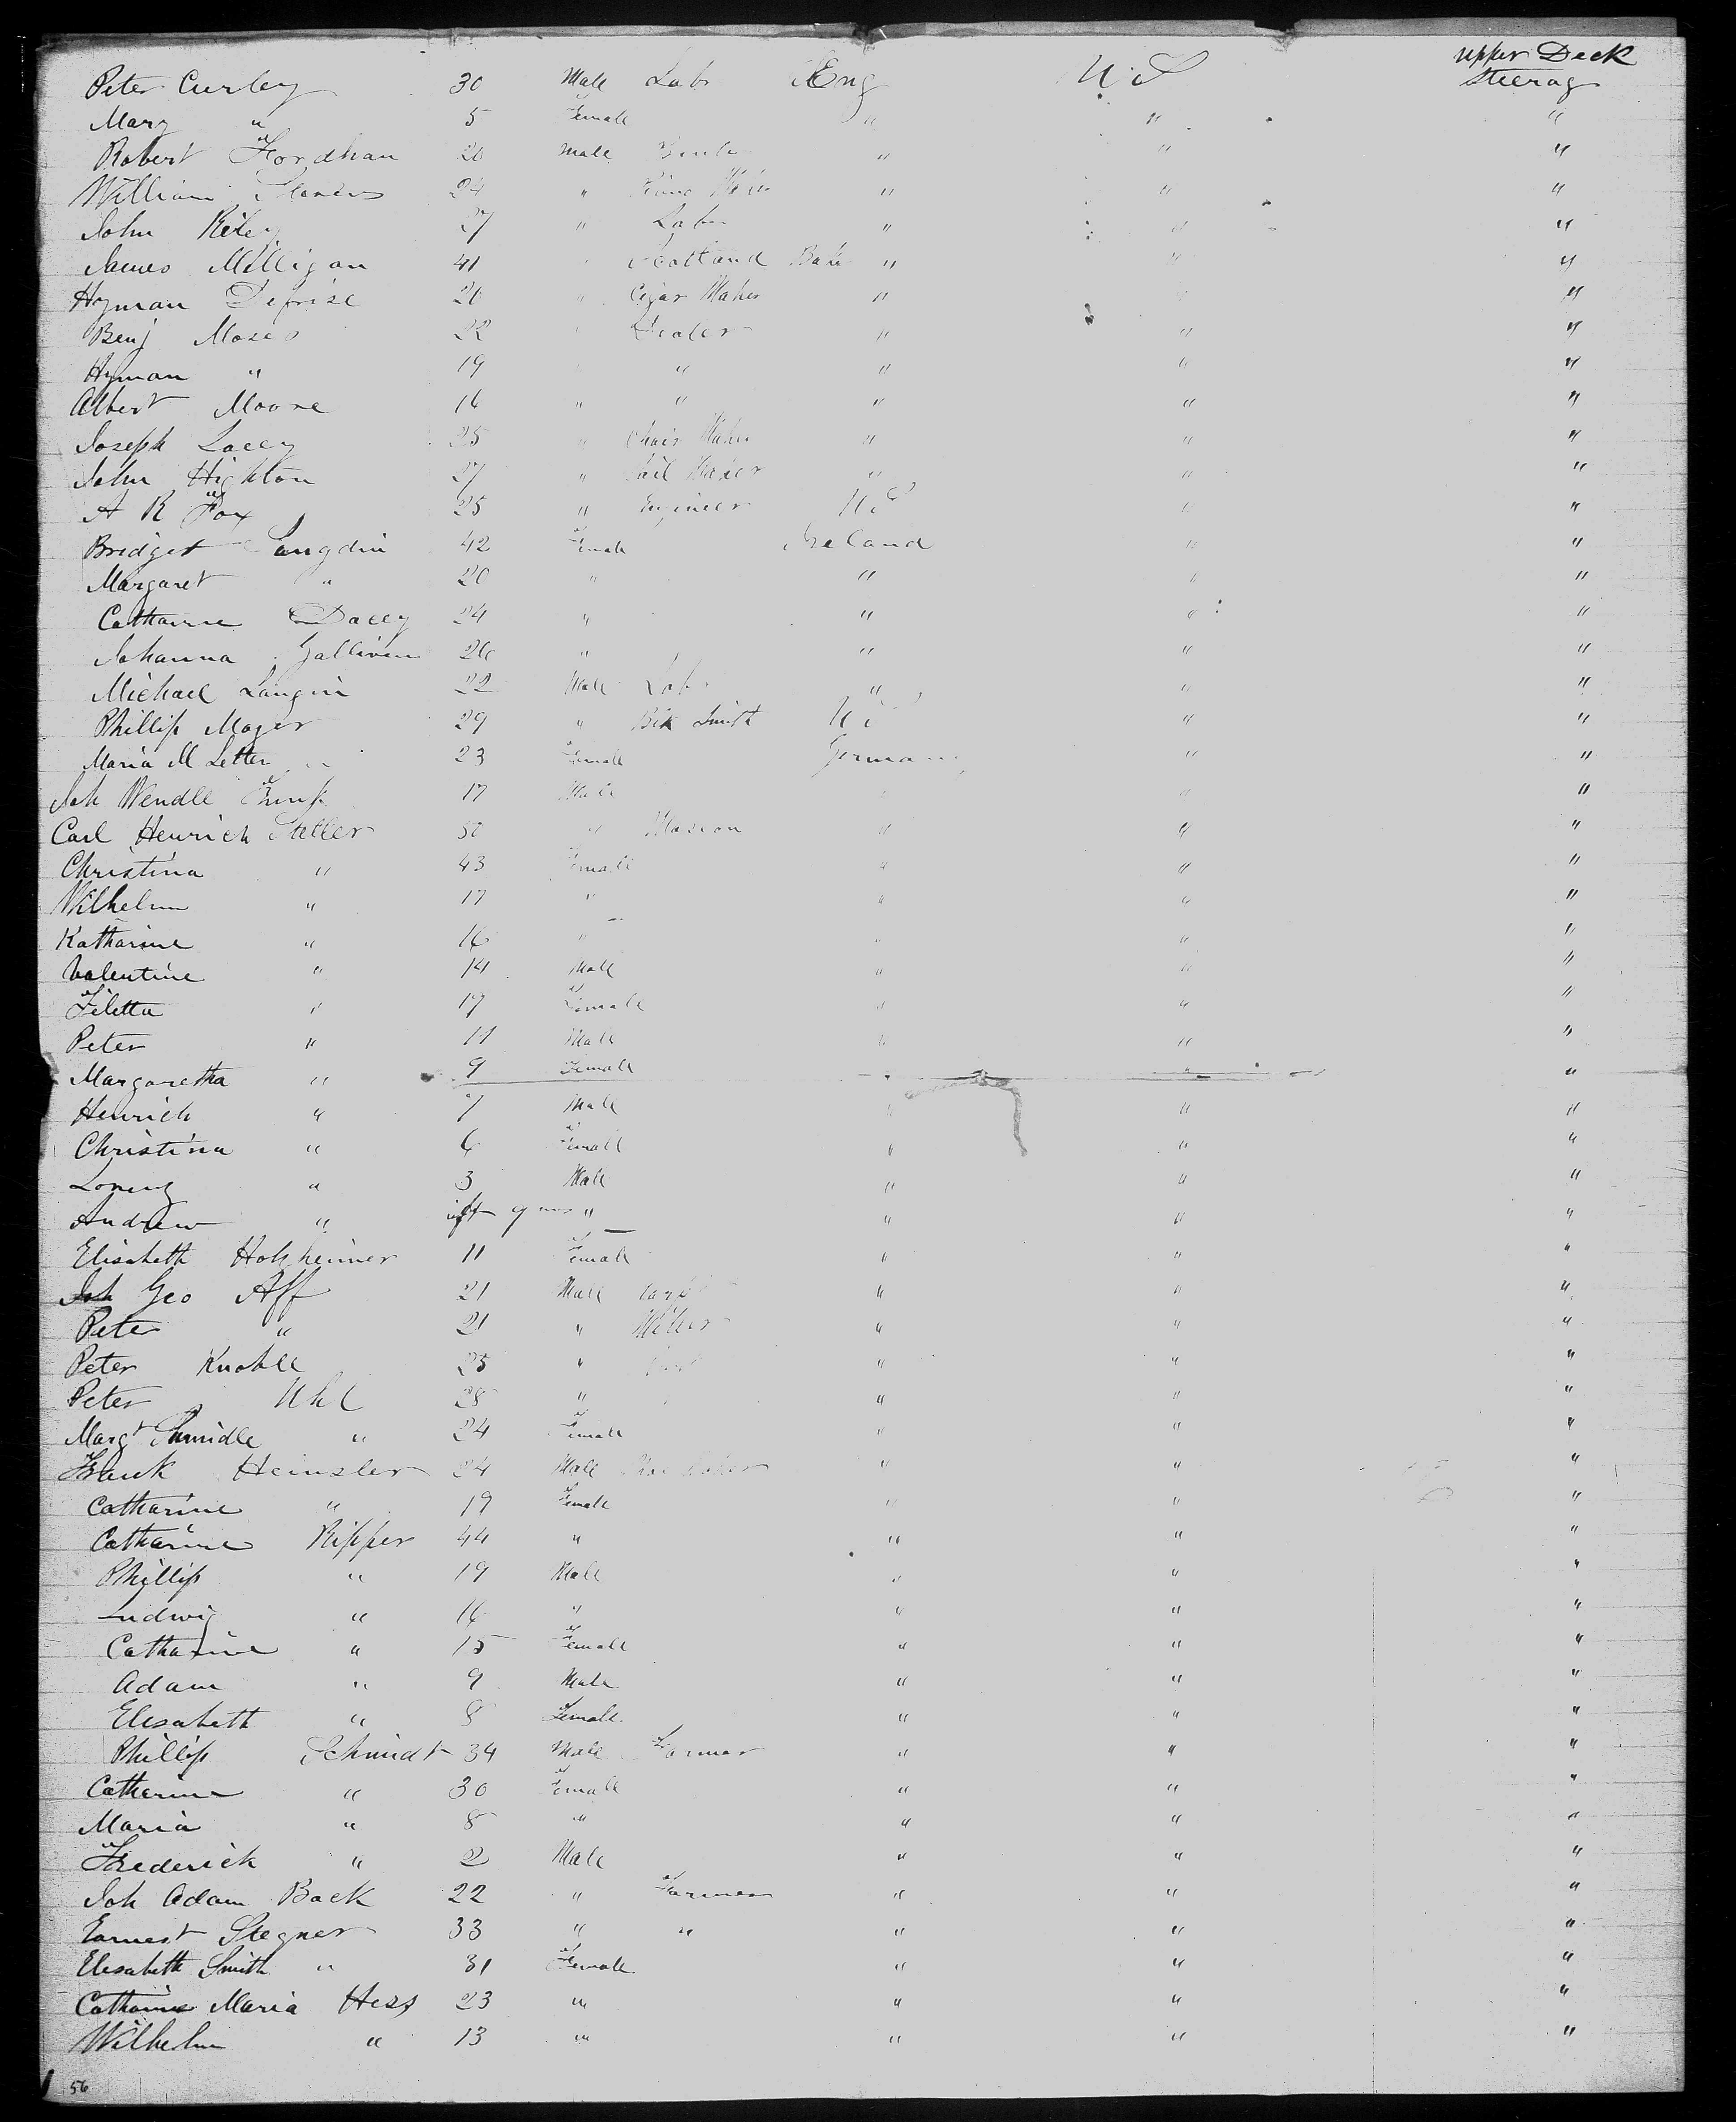 Upper Deck
Peter Curley 30 Male Lab Eng U.S Steerag
Mary " 5 Female " " "
Robert Fordham 20 Male " " "
William 24 " " " "
John Riley 27 " Lab " " "
James Milligan 41 " Scotland Bak " " "
Hyman Defrise 20 " Cigar Maker " " "
Benj Moses 22 " Dealer " " "
Hyman " 19 " " " " "
Albert Moore 16 " " " " "
Joseph Lacey 25 " Chair Maker " " "
John Highton 27 " Sail Maker " " "
A R Fox 25 " Engineer U.S " "
Bridget Langdin 42 Female Ireland " "
Margaret " 20 " " " "
Catharine Dacey 24 " " " "
Johanna Galliven 26 " " " "
Michael Langin 22 Male Lab " " "
Phillip Mayer 29 " Blk Smith U.S " "
Maria M Letter " 23 Female German " "
Joh Wendle 17 Male " " "
Carl Henrich Steller 50 " Masson " " "
Christina " 43 Female " " "
Wilhelm " 17 " " " "
Katharine " 16 " " " "
Valentine " 14 Male " " "
Filetta " 17 Female " " "
Peter " 11 Male " " "
Margaretha " 9 Female " " "
Henrich " 7 Male " " "
Christina " 6 Female " " "
Lorenz " 3 Male " " "
Andrew " inft 9 mos " " " "
Elisabeth Holzheimer 11 Female " " "
Joh Geo Aff 21 Male " " "
Peter " 21 " Miller " " "
Peter Knoble 25 " " " "
Peter Uhl 28 " " " "
Margt Smidle " 24 Female " " "
Frank Heinsler 24 Male Shoe Maker " " "
Catharine " 19 Female " " "
Catharine Ripper 44 " " " "
Phillip " 19 Male " " "
Ludwig " 16 " " " "
Catharine " 15 Female " " "
Adam " 9 Male " " "
Elesabeth " 8 Female " " "
Phillip Schmidt 34 Male Farmer " " "
Catherine " 30 Female " " "
Maria " 8 " " " "
Frederick " 2 Male " " "
Joh Adam Back 22 " Farmer " " "
Earnest Stegner 33 " " " " "
Elesabeth Smith " 31 Female " " "
Catharine Maria Hess 23 " " " "
Wilhelm " 13 " " " "
56